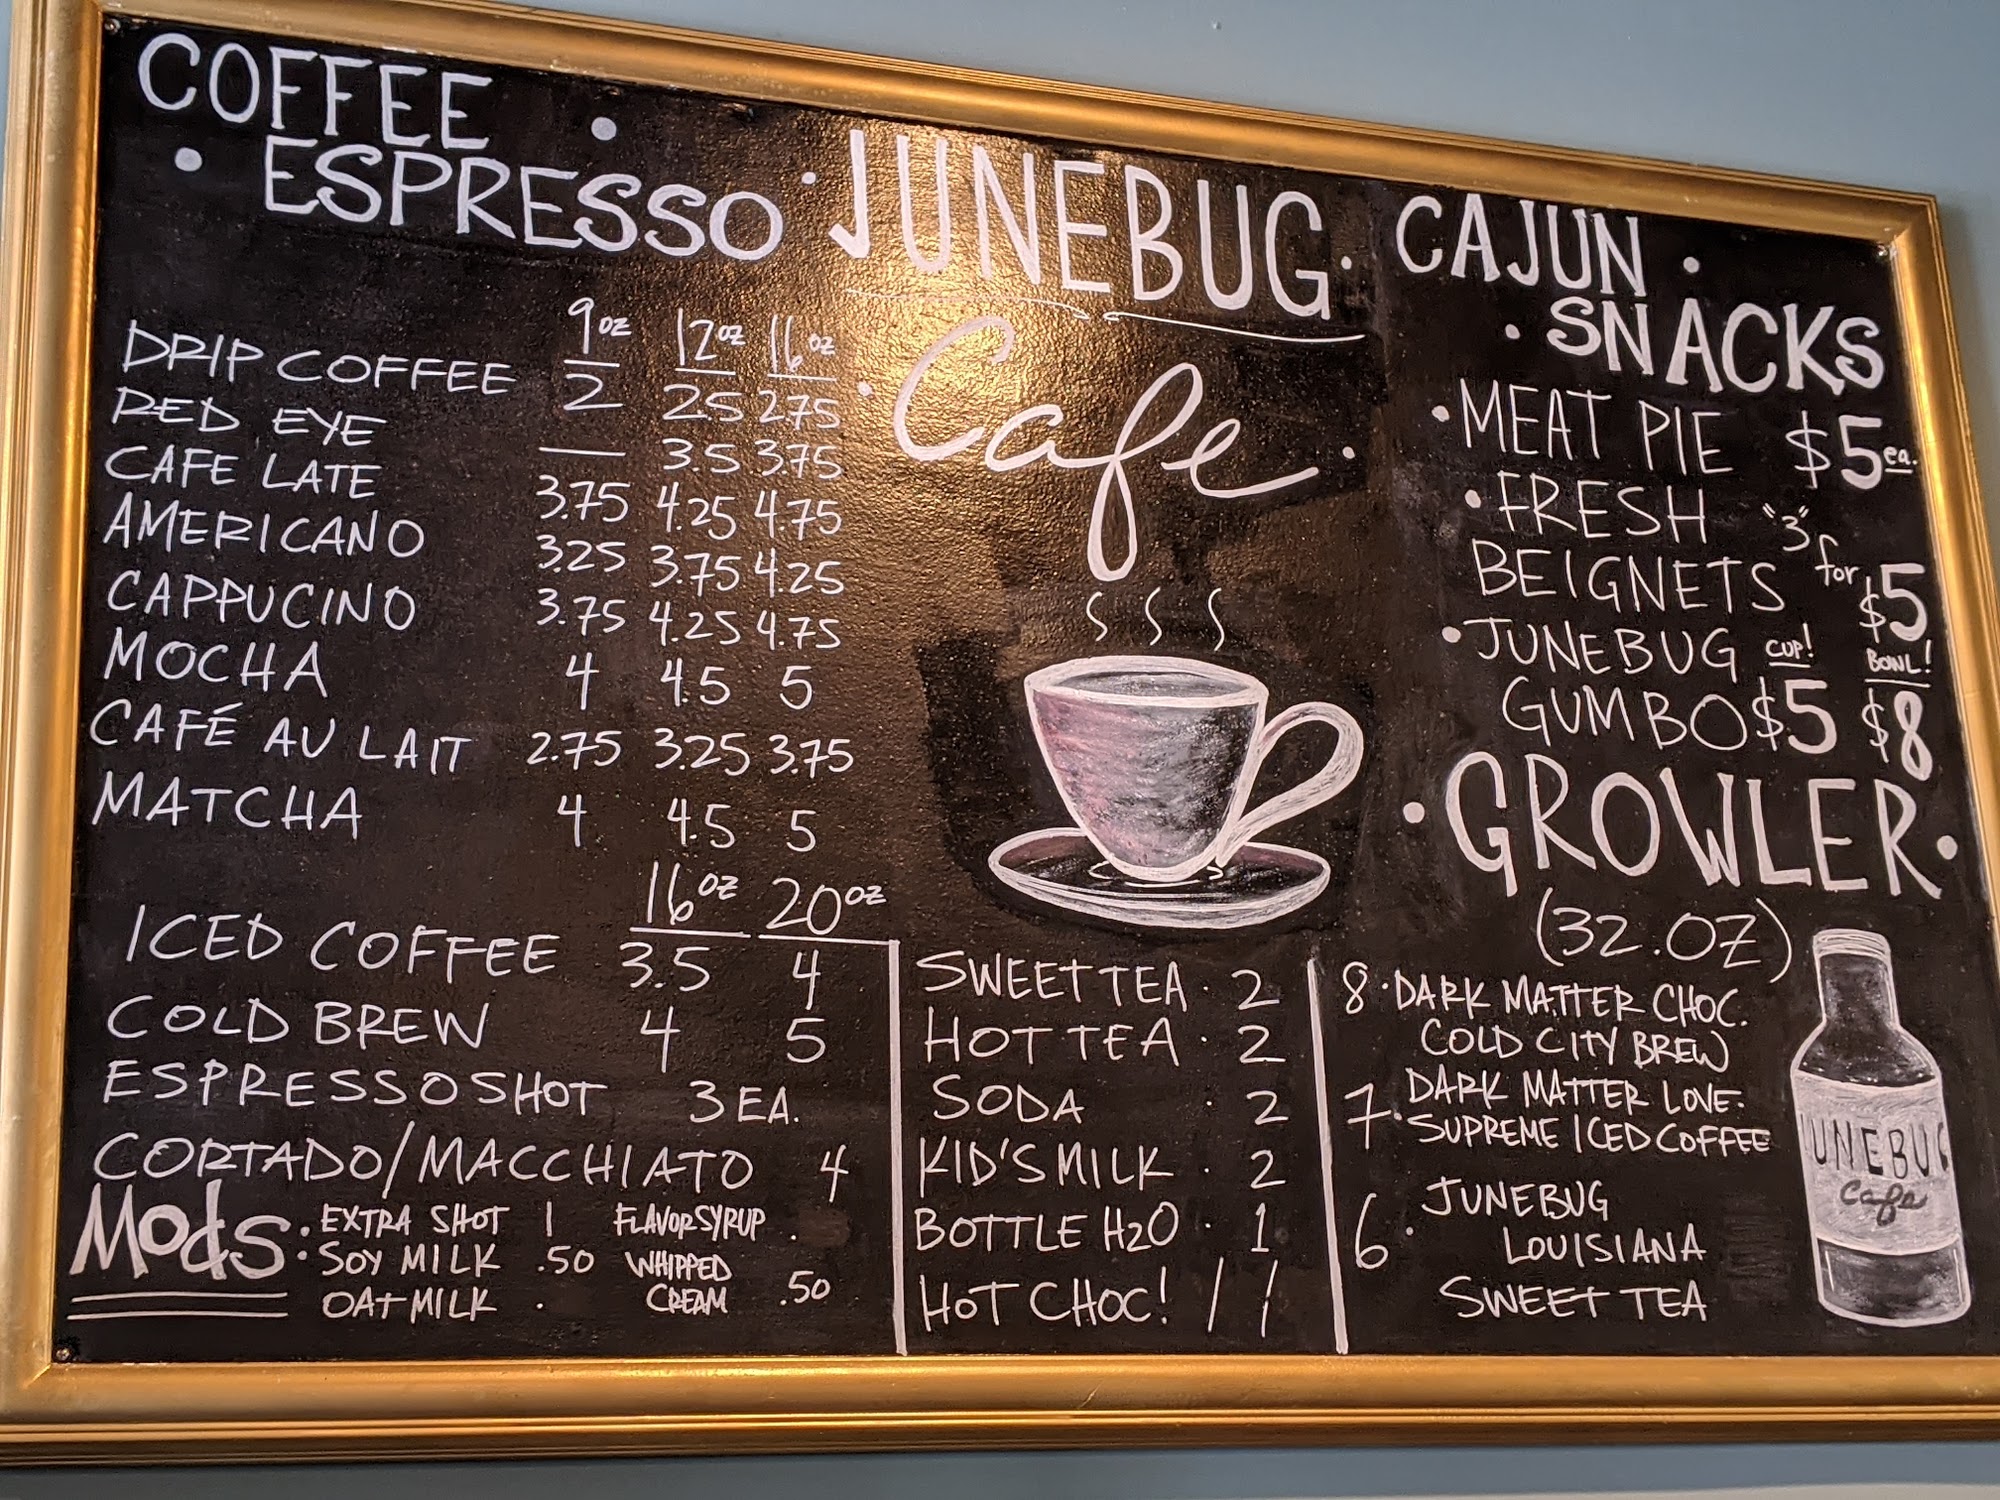 COFFEE
• ESPRESSO •
9oz 12oz 16oz
DRIP COFFEE 2 2.5 2.75
RED EYE — 3.5 3.75
CAFE LATE 3.75 4.25 4.75
AMERICANO 3.25 3.75 4.25
CAPPUCINO 3.75 4.25 4.75
MOCHA 4 4.5 5
CAFÉ AU LAIT 2.75 3.25 3.75
MATCHA 4 4.5 5
16oz 20oz
ICED COFFEE 3.5 4
COLD BREW 4 5
ESPRESSO SHOT 3 EA.
CORTADO/MACCHIATO 4
MODS: EXTRA SHOT 1 FLAVOR SYRUP .
SOY MILK .50 WHIPPED
OAT MILK . CREAM .50
• JUNEBUG •
• Cafe •
SWEET TEA • 2
HOT TEA • 2
SODA • 2
KID'S MILK • 2
BOTTLE H2O • 1
HOT CHOC! / /
CAJUN •
• SNACKS
• MEAT PIE $5 ea.
• FRESH "3"
BEIGNETS for $5
• JUNEBUG CUP! BOWL!
GUMBO $5 $8
• GROWLER •
(32.OZ)
8 • DARK MATTER CHOC.
COLD CITY BREW
DARK MATTER LOVE.
7 • SUPREME ICED COFFEE
JUNEBUG
6 • LOUISIANA
SWEET TEA
UNEBUG
Cafe